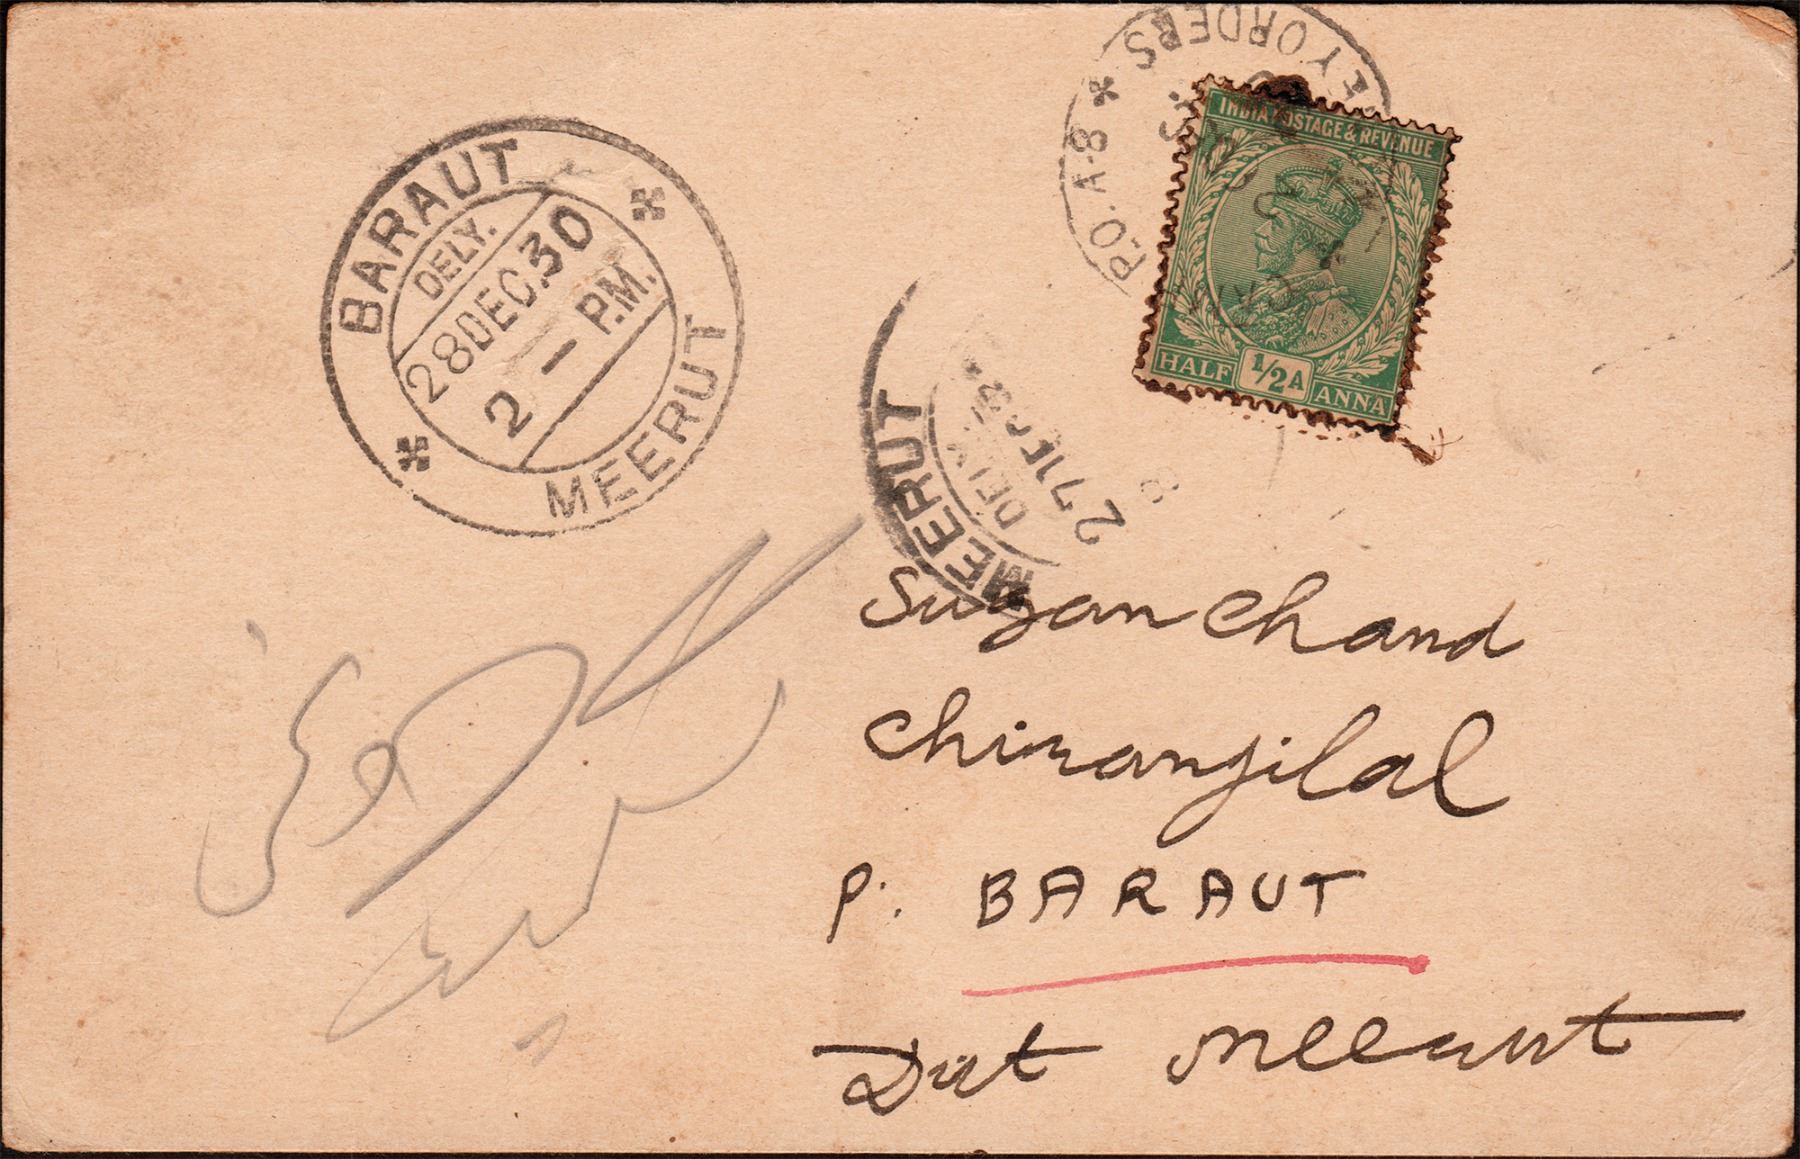 P.O. A-8 * EY ORDERS
INDIA POSTAGE & REVENUE
HALF 1/2A ANNA
BARAUT
DELY.
28 DEC. 30
2 - P.M.
MEERUT
MEERUT
DELY.
27 DEC
Sugan Chand
Chiranjilal
P. BARAUT
Dist Meerut